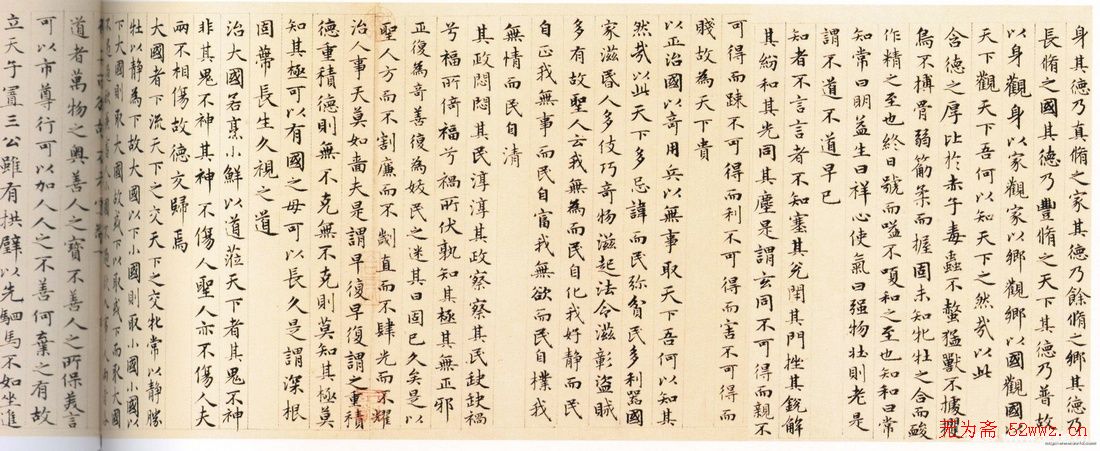 身其德乃真脩之家其德乃餘脩之鄉其德乃
長脩之國其德乃豐脩之天下其德乃普故
以身觀身以家觀家以鄉觀鄉以國觀國以
天下觀天下吾何以知天下之然哉以此
含德之厚比於赤子毒蟲不螫猛獸不據玃
鳥不搏骨弱筋柔而握固未知牝牡之合而酸
作精之至也終日號而嗌不嗄和之至也知和曰常
知常曰明益生曰祥心使氣曰强物壯則老是
謂不道不道早已
知者不言言者不知塞其兌閉其門挫其銳解
其紛和其光同其塵是謂玄同不可得而親不
可得而踈不可得而利不可得而害不可得而
貴不可得而
賤故為天下貴
以正治國以奇用兵以無事取天下吾何以知其
然哉以此天下多忌諱而民弥貧民多利器國
家滋昬人多伎巧奇物滋起法令滋彰盜賊
多有故聖人云我無為而民自化我好靜而民
自正我無事而民自富我無欲而民自樸我
無情而民自清
其政悶悶其民淳淳其政察察其民缺缺禍
兮福所倚福兮禍所伏孰知其極其無正邪
正復為奇善復為妖民之迷其曰固已久矣是以
聖人方而不割廉而不劌直而不肆光而不耀
治人事天莫如嗇夫是謂早復早復謂之重積
德重積德則無不克無不克則莫知其極莫
知其極可以有國有國之母可以長久是謂深根
固蔕長生久視之道
治大國若烹小鮮以道莅天下者其鬼不神
非其鬼不神其神不傷人聖人亦不傷人夫
兩不相傷故德交歸焉
大國者下流天下之交天下之交牝常以靜勝
牡以靜為下故大國以下小國則取小國小國以
下大國則取大國故或下以取或下而取大國
道者萬物之奧善人之寶不善人之所保美言
可以市尊行可以加人人之不善何棄之有故
立天子置三公雖有拱璧以先駟馬不如坐進
无为斋 52wwz.cn